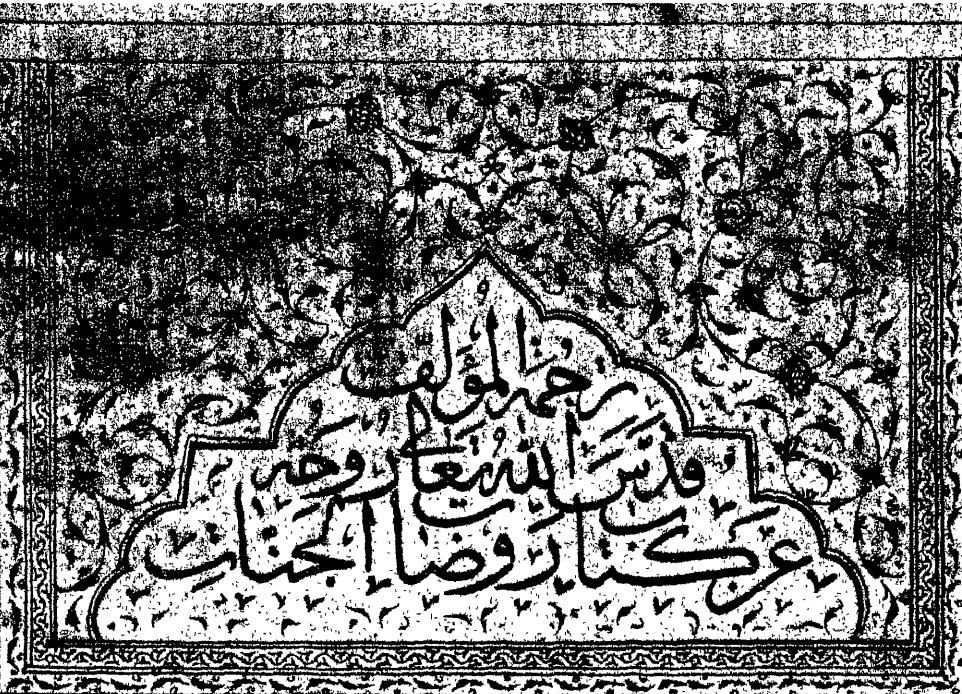 ترجمة المؤلف
قدس الله تعالى روحه
عن كتاب روضات الجنات